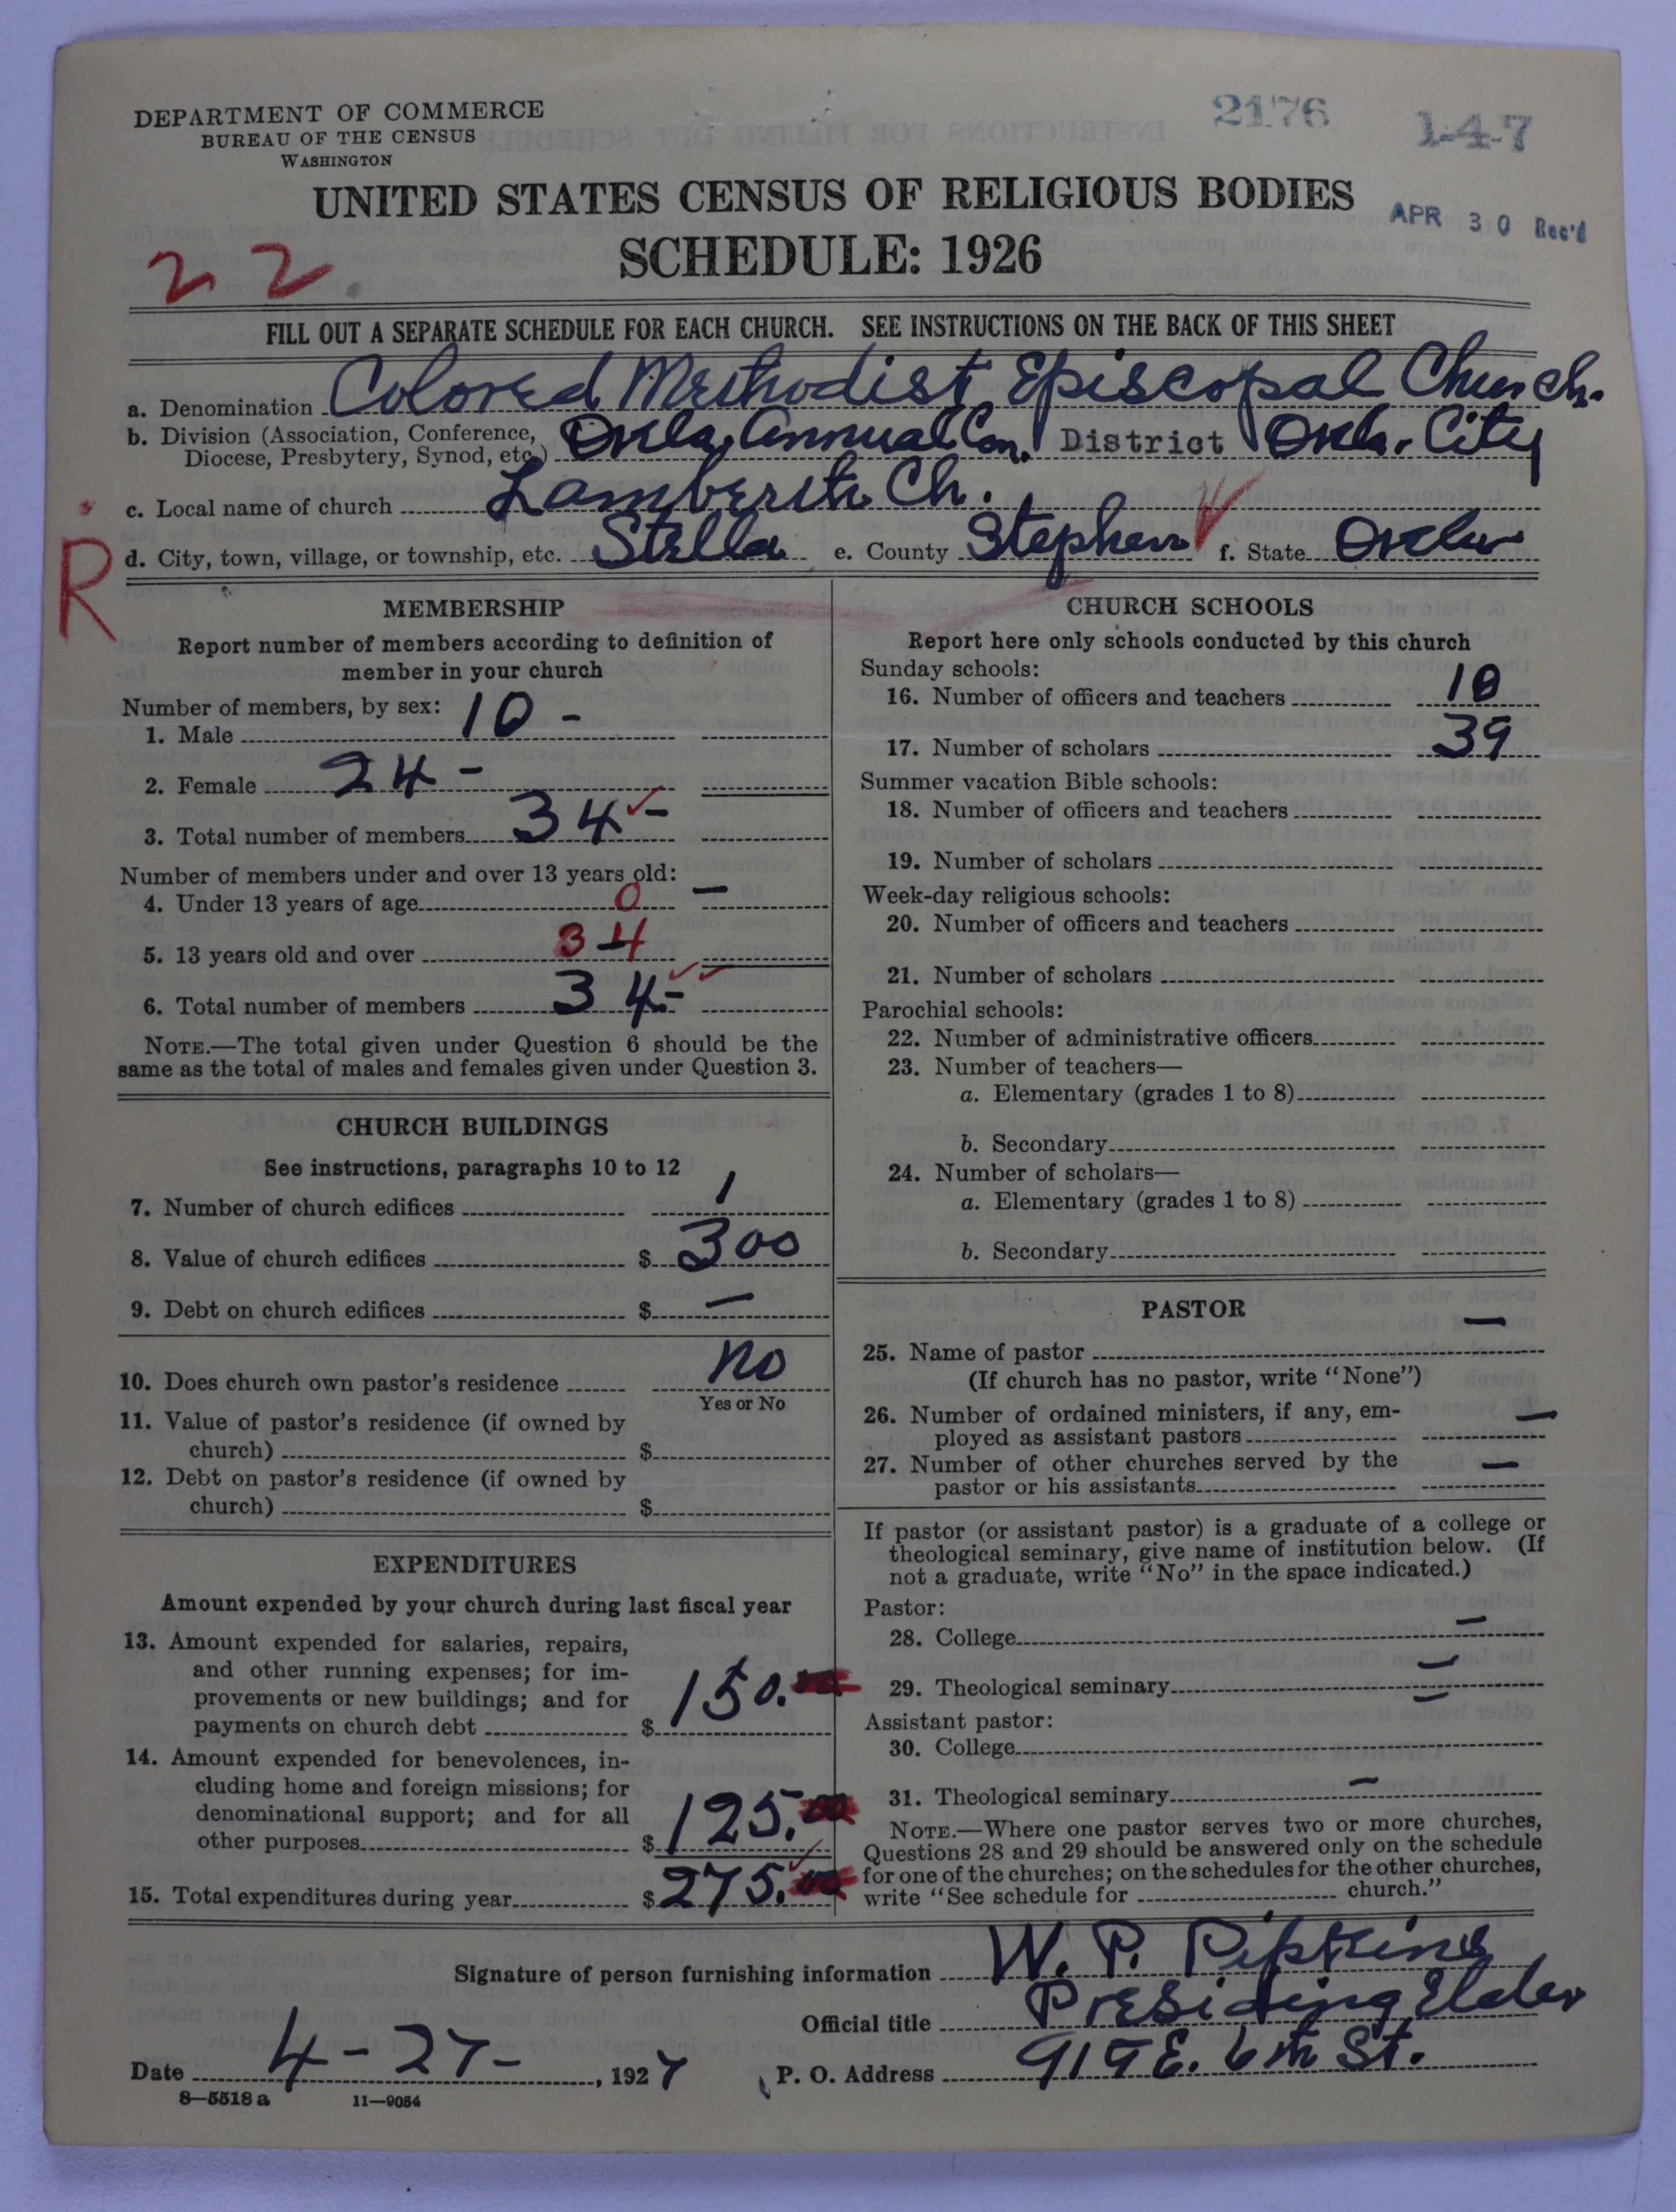 DEPARTMENT OF COMMERCE
BUREAU OF THE CENSUS
WASHINGTON
2176
1-4-7
UNITED STATES CENSUS OF RELIGIOUS BODIES
APR 30 Rec'd
SCHEDULE: 1926
22
FILL OUT A SEPARATE SCHEDULE FOR EACH CHURCH. SEE INSTRUCTIONS ON THE BACK OF THIS SHEET
a. Denomination Colored Methodist Episcopal Church.
b. Division (Association, Conference, Diocese, Presbytery, Synod, etc.) Okla. Annual Con. District Okla. City
c. Local name of church Ch.
R
d. City, town, village, or township, etc. Stella e. County Stephens f. State Okla
MEMBERSHIP
Report number of members according to definition of
member in your church
Number of members, by sex:
1. Male 10 -
2. Female 24 -
3. Total number of members 34 -
Number of members under and over 13 years old:
4. Under 13 years of age 0 -
5. 13 years old and over 34
6. Total number of members 34 -
NOTE.—The total given under Question 6 should be the
same as the total of males and females given under Question 3.
CHURCH BUILDINGS
See instructions, paragraphs 10 to 12
7. Number of church edifices 1
8. Value of church edifices $ 300
9. Debt on church edifices $ —
10. Does church own pastor's residence no
Yes or No
11. Value of pastor's residence (if owned by
church) $
12. Debt on pastor's residence (if owned by
church) $
EXPENDITURES
Amount expended by your church during last fiscal year
13. Amount expended for salaries, repairs,
and other running expenses; for im-
provements or new buildings; and for
payments on church debt $ 150.00
14. Amount expended for benevolences, in-
cluding home and foreign missions; for
denominational support; and for all
other purposes $ 125.00
15. Total expenditures during year $ 275.00
CHURCH SCHOOLS
Report here only schools conducted by this church
Sunday schools:
16. Number of officers and teachers 10
17. Number of scholars 39
Summer vacation Bible schools:
18. Number of officers and teachers
19. Number of scholars
Week-day religious schools:
20. Number of officers and teachers
21. Number of scholars
Parochial schools:
22. Number of administrative officers
23. Number of teachers—
a. Elementary (grades 1 to 8)
b. Secondary
24. Number of scholars—
a. Elementary (grades 1 to 8)
b. Secondary
PASTOR
25. Name of pastor —
(If church has no pastor, write "None")
26. Number of ordained ministers, if any, em-
ployed as assistant pastors —
27. Number of other churches served by the
pastor or his assistants —
If pastor (or assistant pastor) is a graduate of a college or
theological seminary, give name of institution below. (If
not a graduate, write "No" in the space indicated.)
Pastor:
28. College —
29. Theological seminary —
Assistant pastor:
30. College —
31. Theological seminary —
NOTE.—Where one pastor serves two or more churches,
Questions 28 and 29 should be answered only on the schedule
for one of the churches; on the schedules for the other churches,
write "See schedule for church."
Signature of person furnishing information W. P. Pipkins
Official title Presiding Elder
Date 4-27-, 1927 P. O. Address 919 E. 6th St.
8—5518 a 11—9054